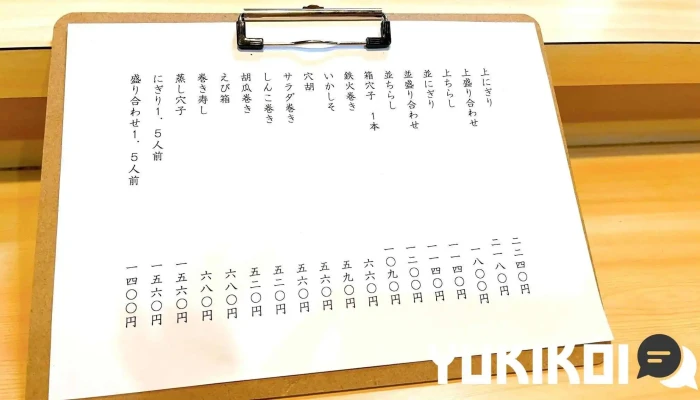 上にぎり 二二四〇円
上盛り合わせ 二一八〇円
上ちらし 一八〇〇円
並にぎり 一一四〇円
並盛り合わせ 一一四〇円
並ちらし 一二〇〇円
箱穴子 1本 一〇九〇円
鉄火巻き 六六〇円
いかしそ 五九〇円
穴胡 五六〇円
サラダ巻き 五六〇円
しんこ巻き 五二〇円
胡瓜巻き 五二〇円
えび箱 六八〇円
巻き寿し 六八〇円
蒸し穴子 一五六〇円
にぎり1.5人前 一五六〇円
盛り合わせ1.5人前 一四〇〇円
YUKIKOI